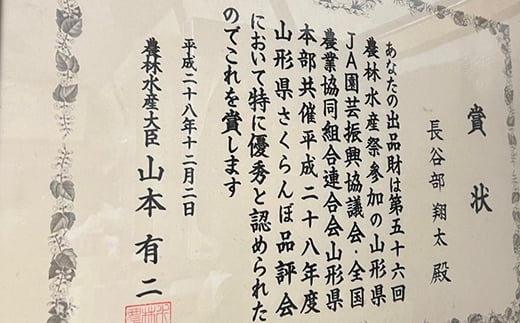 賞状
長谷部 翔太 殿
あなたの出品財は第五十六回
農林水産祭参加の山形県
JA園芸振興協議会・全国
農業協同組合連合会山形県
本部共催平成二十八年度
山形県さくらんぼ品評会
において特に優秀と認められた
のでこれを賞します
平成二十八年十二月二日
農林水産大臣 山本有二